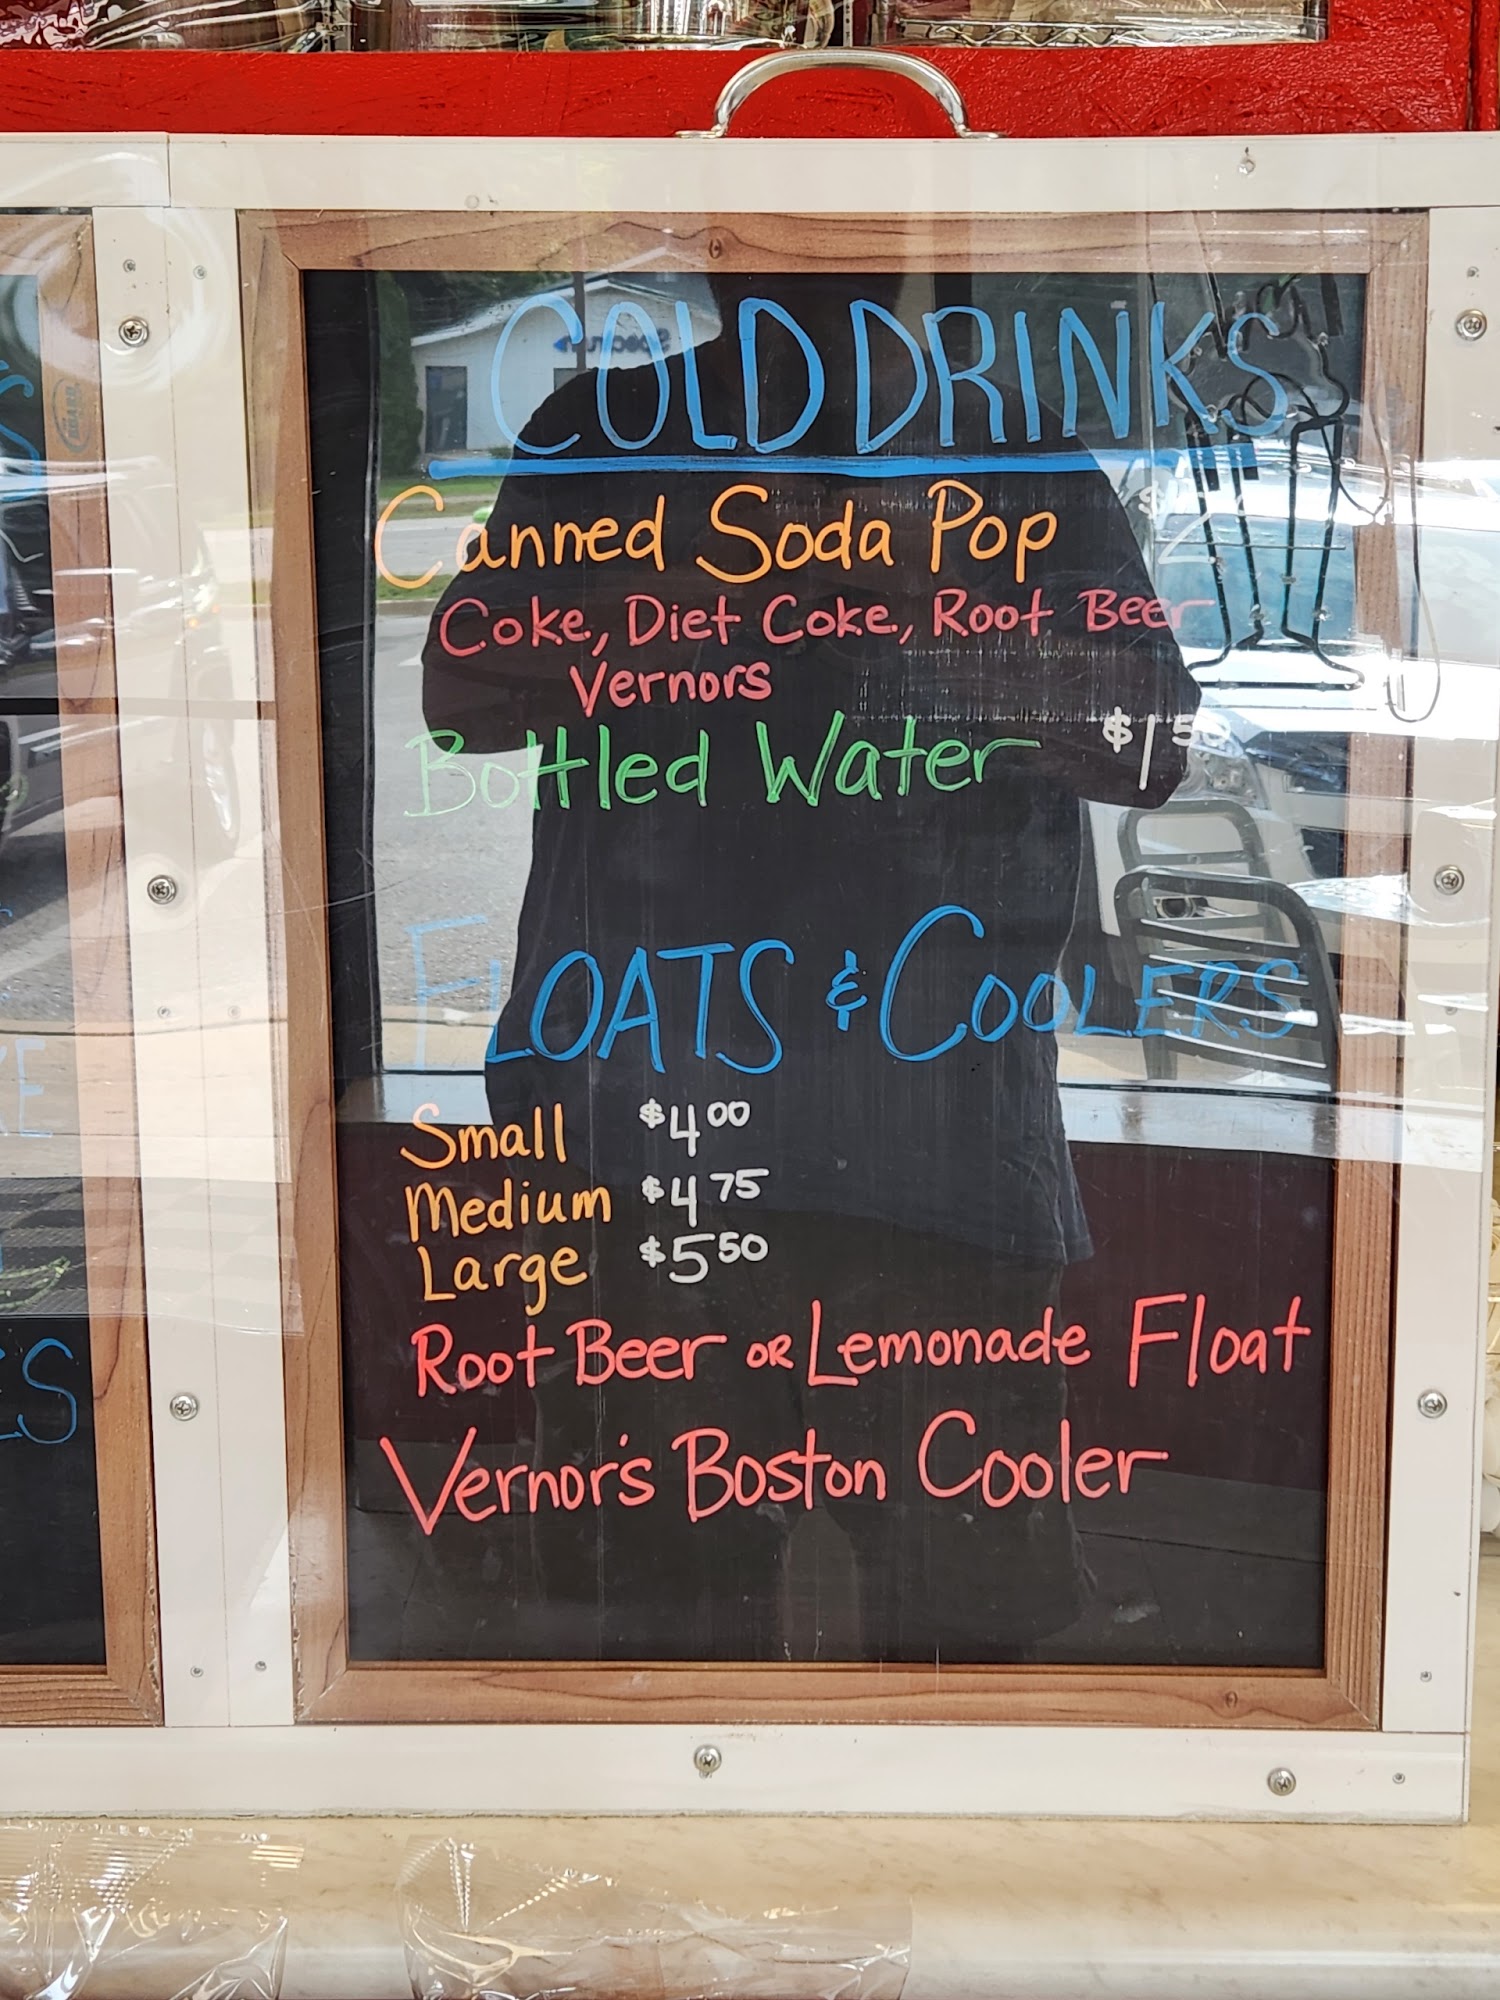 COLD DRINKS
Canned Soda Pop $2
Coke, Diet Coke, Root Beer
Vernors
Bottled Water $1 50
FLOATS & COOLERS
Small $4 00
Medium $4 75
Large $5 50
Root Beer OR Lemonade Float
Vernor's Boston Cooler